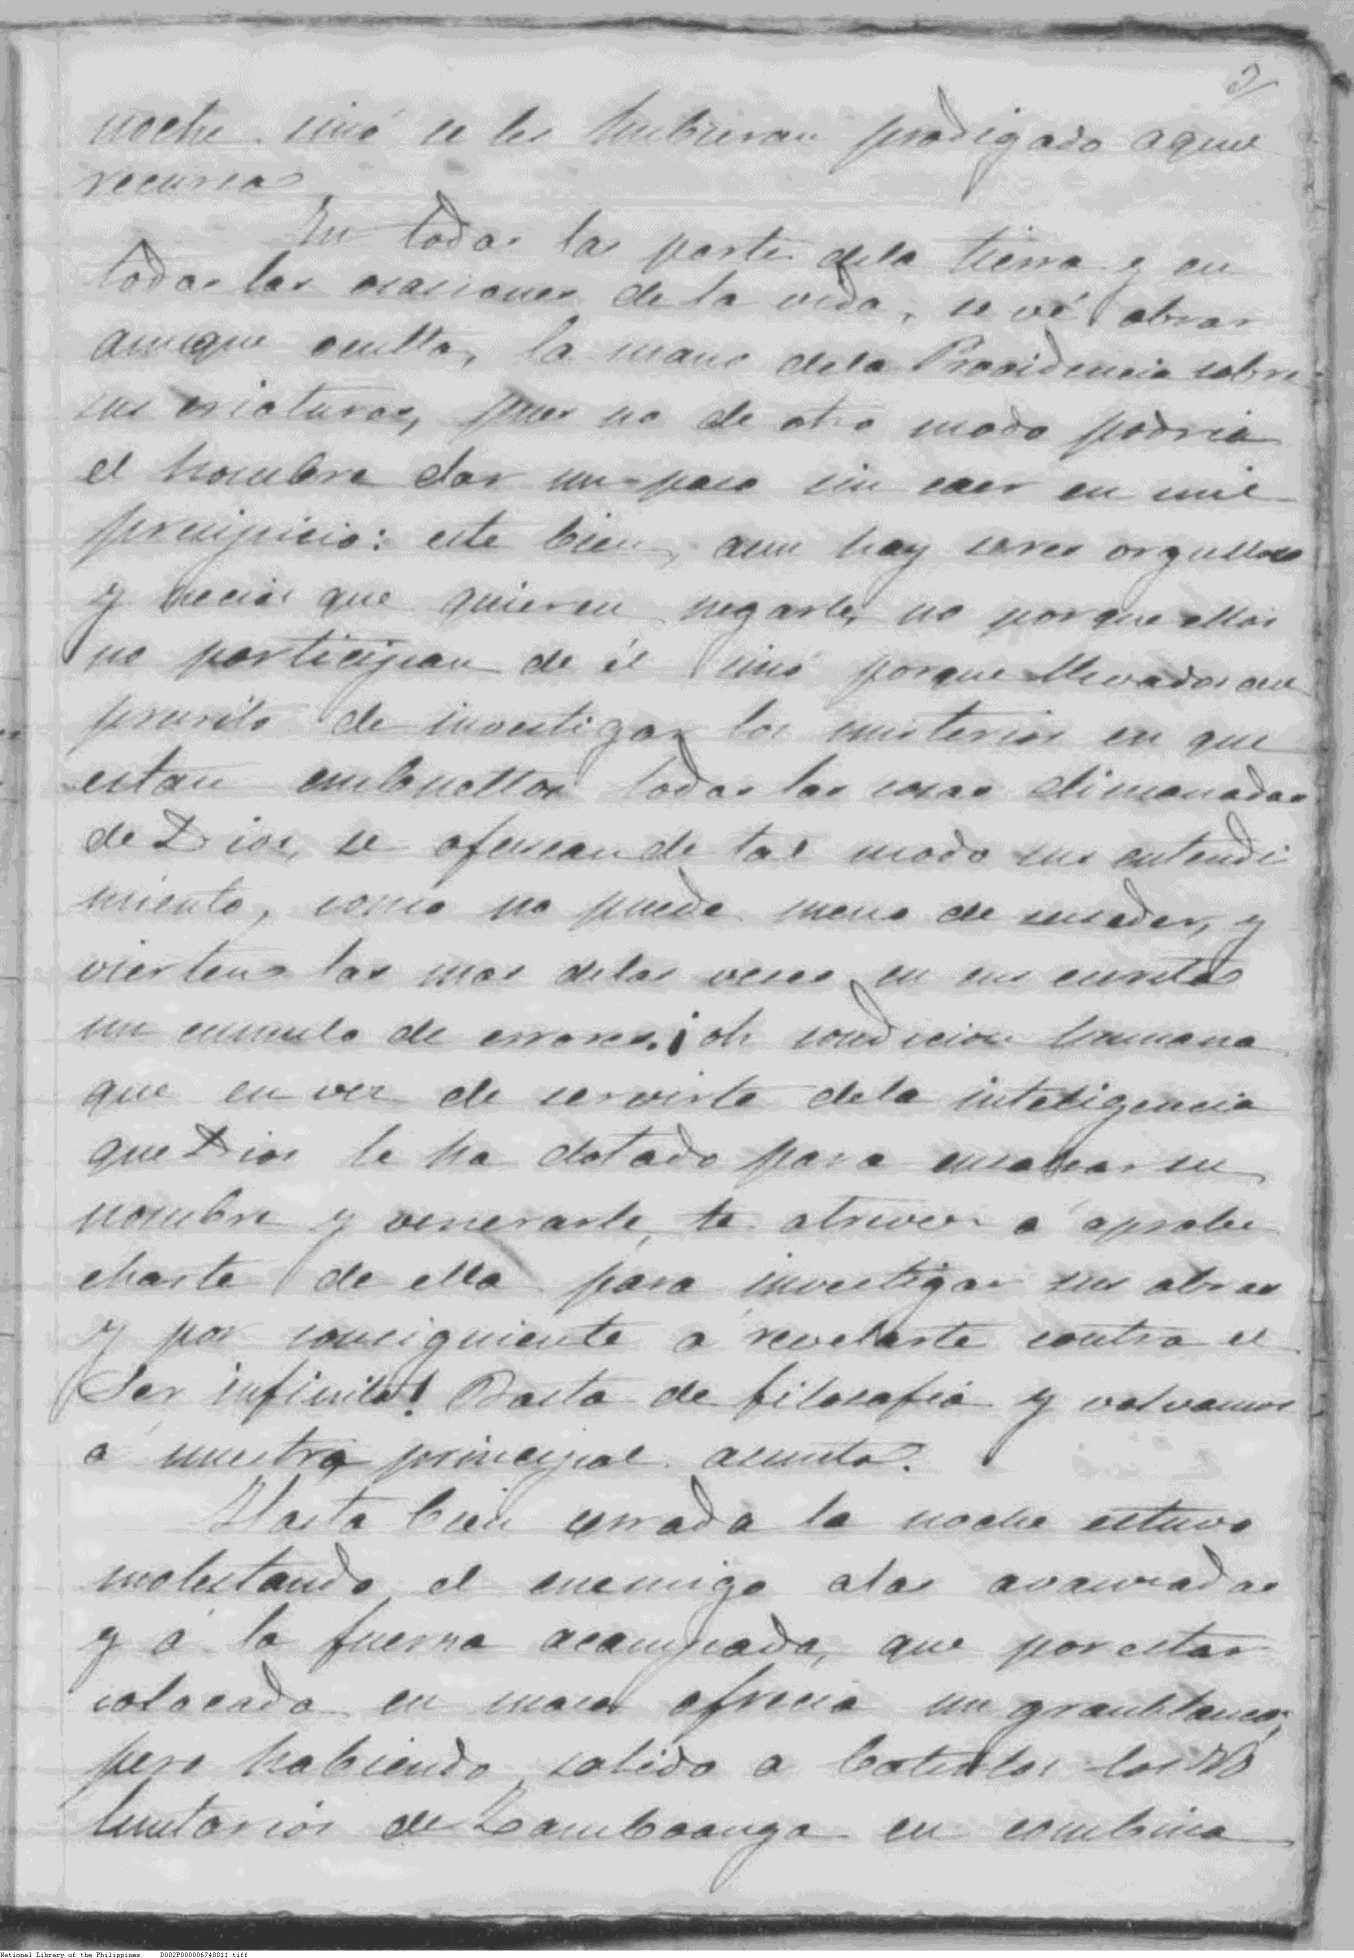 noche sinó se les hubieran prodigado aque
recursos
En todas las parte dela tierra y en
todas las ocasiones de la vida, se vé obrar
aunque oculta, la mano dela Providencia sobre
sus criaturas, pues no de otro modo podria
el hombre dar un paso sin caer en mil
presipicio: este bien, aun hay seres orgullosos
y necios que quieren negarle, no porque ellos
no participan de él sinó porque llevados del
prurito de investigar los misterios en que
estan embueltos todas las cosas dimanadas
de Dios, se ofuscan de tal modo sus entendi
miento, como no puede meno de suseder, y
vierten las mas delas veces en sus escritos
un cumulo de errores. ¡oh condicion humana
que en vez de servirte dela inteligencia
que Dios te ha dotado para ensalsar su
nombre y venerarle, te atreves á aprobe
charte de ella para investigar sus obras
y por consiguiente á revelarte contra el
Ser infinito! Basta de filosofia y volvamos
á nuestro principal asunto.
Hasta bien cerrada la noche estuvo
molestando el enemigo alas avanzadas
y á la fuerza acampada, que por estar
colocada en masa ofrecia un gran blanco,
pero habiendo salido a batirlos los Vo
luntarios de Zamboanga en combina
National Library of the Philippines D002P000006740011.tiff